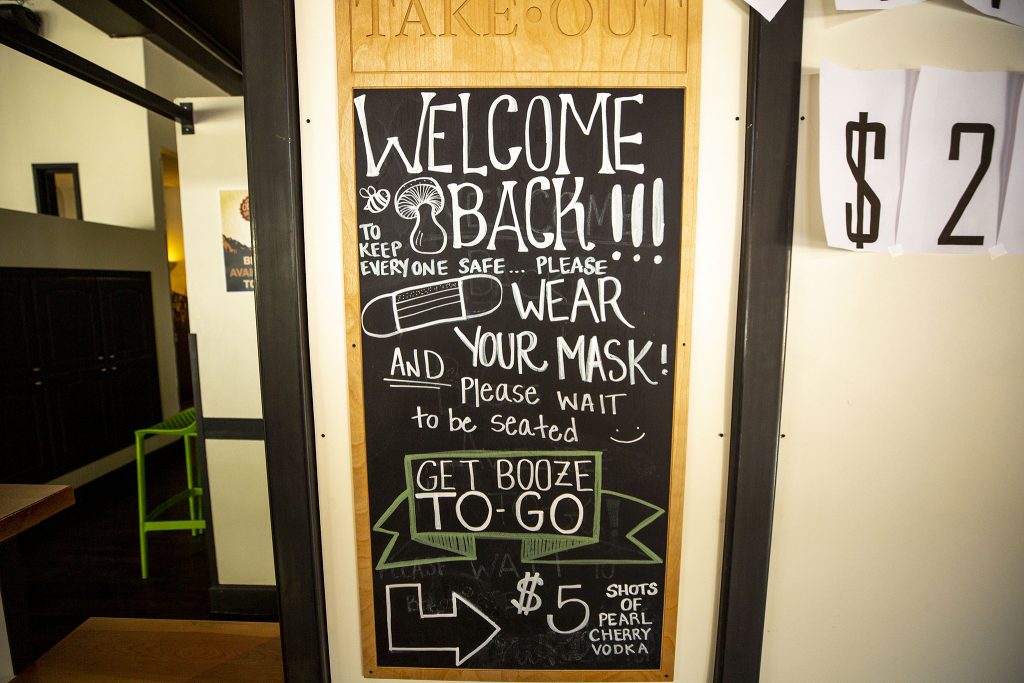 TAKE•OUT
WELCOME
BACK!!!
TO
KEEP
EVERYONE SAFE... PLEASE
WEAR
YOUR MASK!
AND
Please WAIT
to be seated
GET BOOZE
TO-GO
$5
SHOTS
OF
PEARL
CHERRY
VODKA
$2